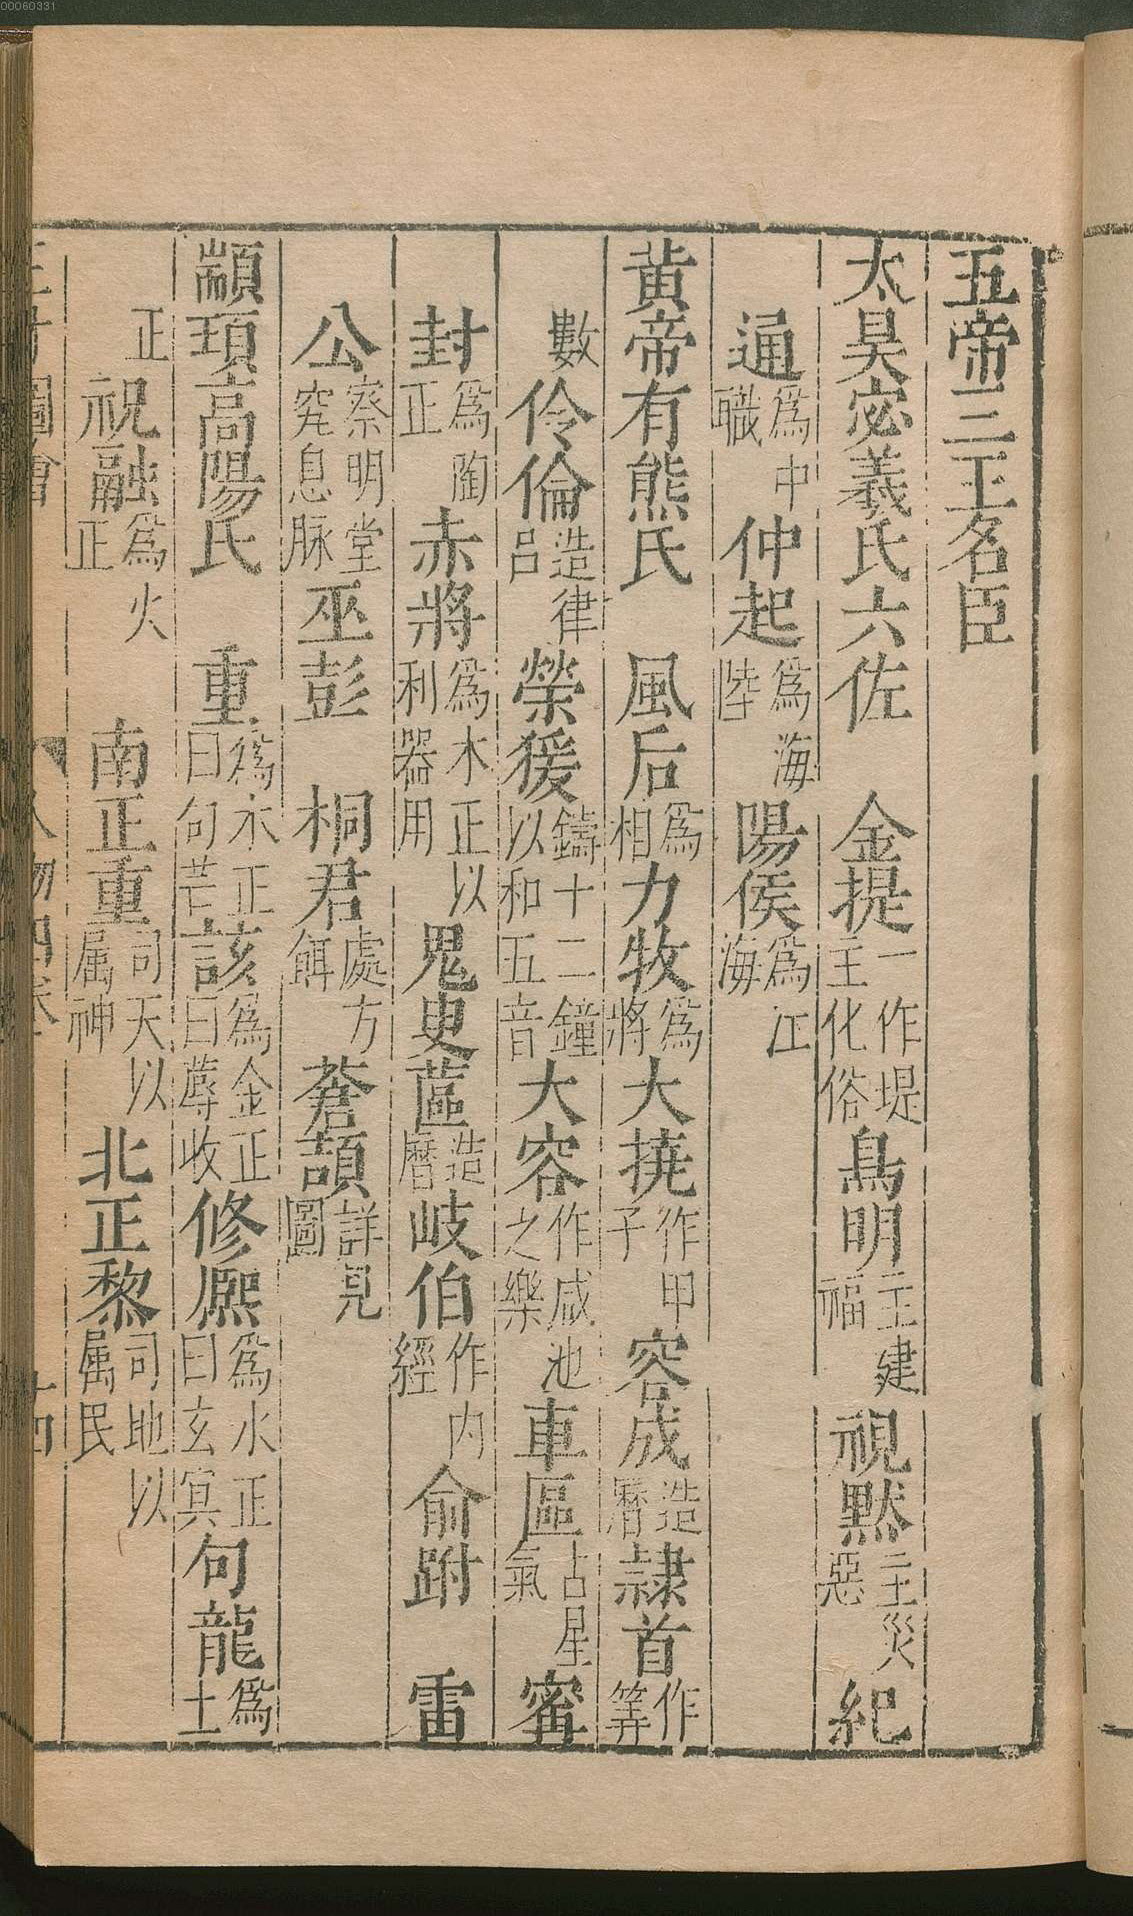 00060331
五帝三王名臣
太昊宓義氏六佐　金提一作堤主化俗鳥明主建福　視黙主災惡　紀
通爲中職仲起爲海陸陽侯爲江海
黄帝有熊氏　風后爲相力牧爲將大撓作甲子　容成造曆隷首作筭
數伶倫造律呂榮猨鑄十二鐘以和五音大容作咸池之樂車區占星氣　宻
封爲陶正赤將爲木正以利器用　鬼臾蓲造曆岐伯作内經　俞跗　雷
公察明堂究息脉巫彭　桐君處方餌蒼頡詳見圖
顓頊高陽氏　重爲木正曰句芒該爲金正曰蓐收修熈爲水正曰玄冥句龍爲土
正祝融爲火正　南正重司天以属神　北正黎司地以属民
三才圖會　人物四卷　十四